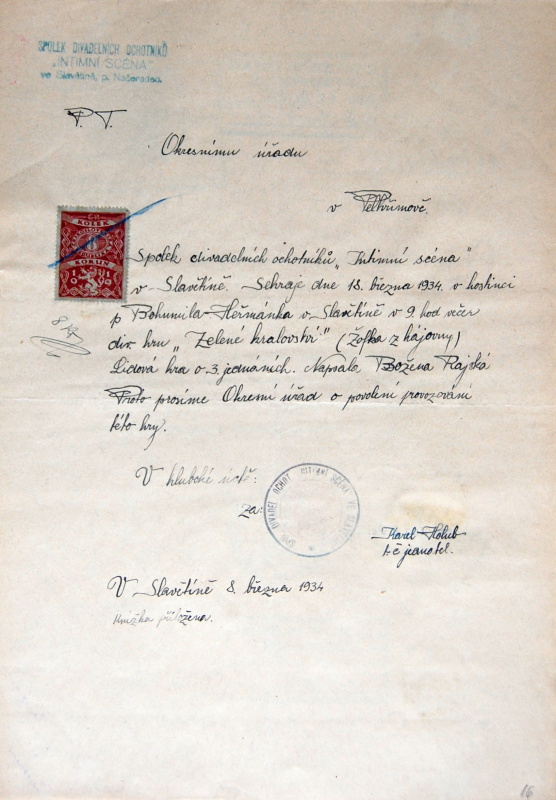 SPOLEK DIVADELNÍCH OCHOTNÍKŮ
„INTIMNÍ SCÉNA"
ve Slavětíně, p. Načeradec.
P. T.
Okresnímu úřadu
v Pelhřimově.
KOLEK
KORUN
8 Kč
Spolek divadelních ochotníků „Intimní scéna"
v Slavětíně. Sehraje dne 18. března 1934. v hostinci
p Bohumila Heřmánka v Slavětíně v 9. hod večer
div. hru „Zelené kralovství" (Žofka z hájovny)
Lidová hra o 3. jednáních. Napsala Božena Rajská
Proto prosíme Okresní úřad o povolení provozování
této hry.
V hluboké úctě:
za:
DIVADEL. OCHOT. INTIMNÍ SCÉNA VE
Karel Holub
t. č jednatel.
V Slavětíně 8. března 1934
Knižka přiložena.
16